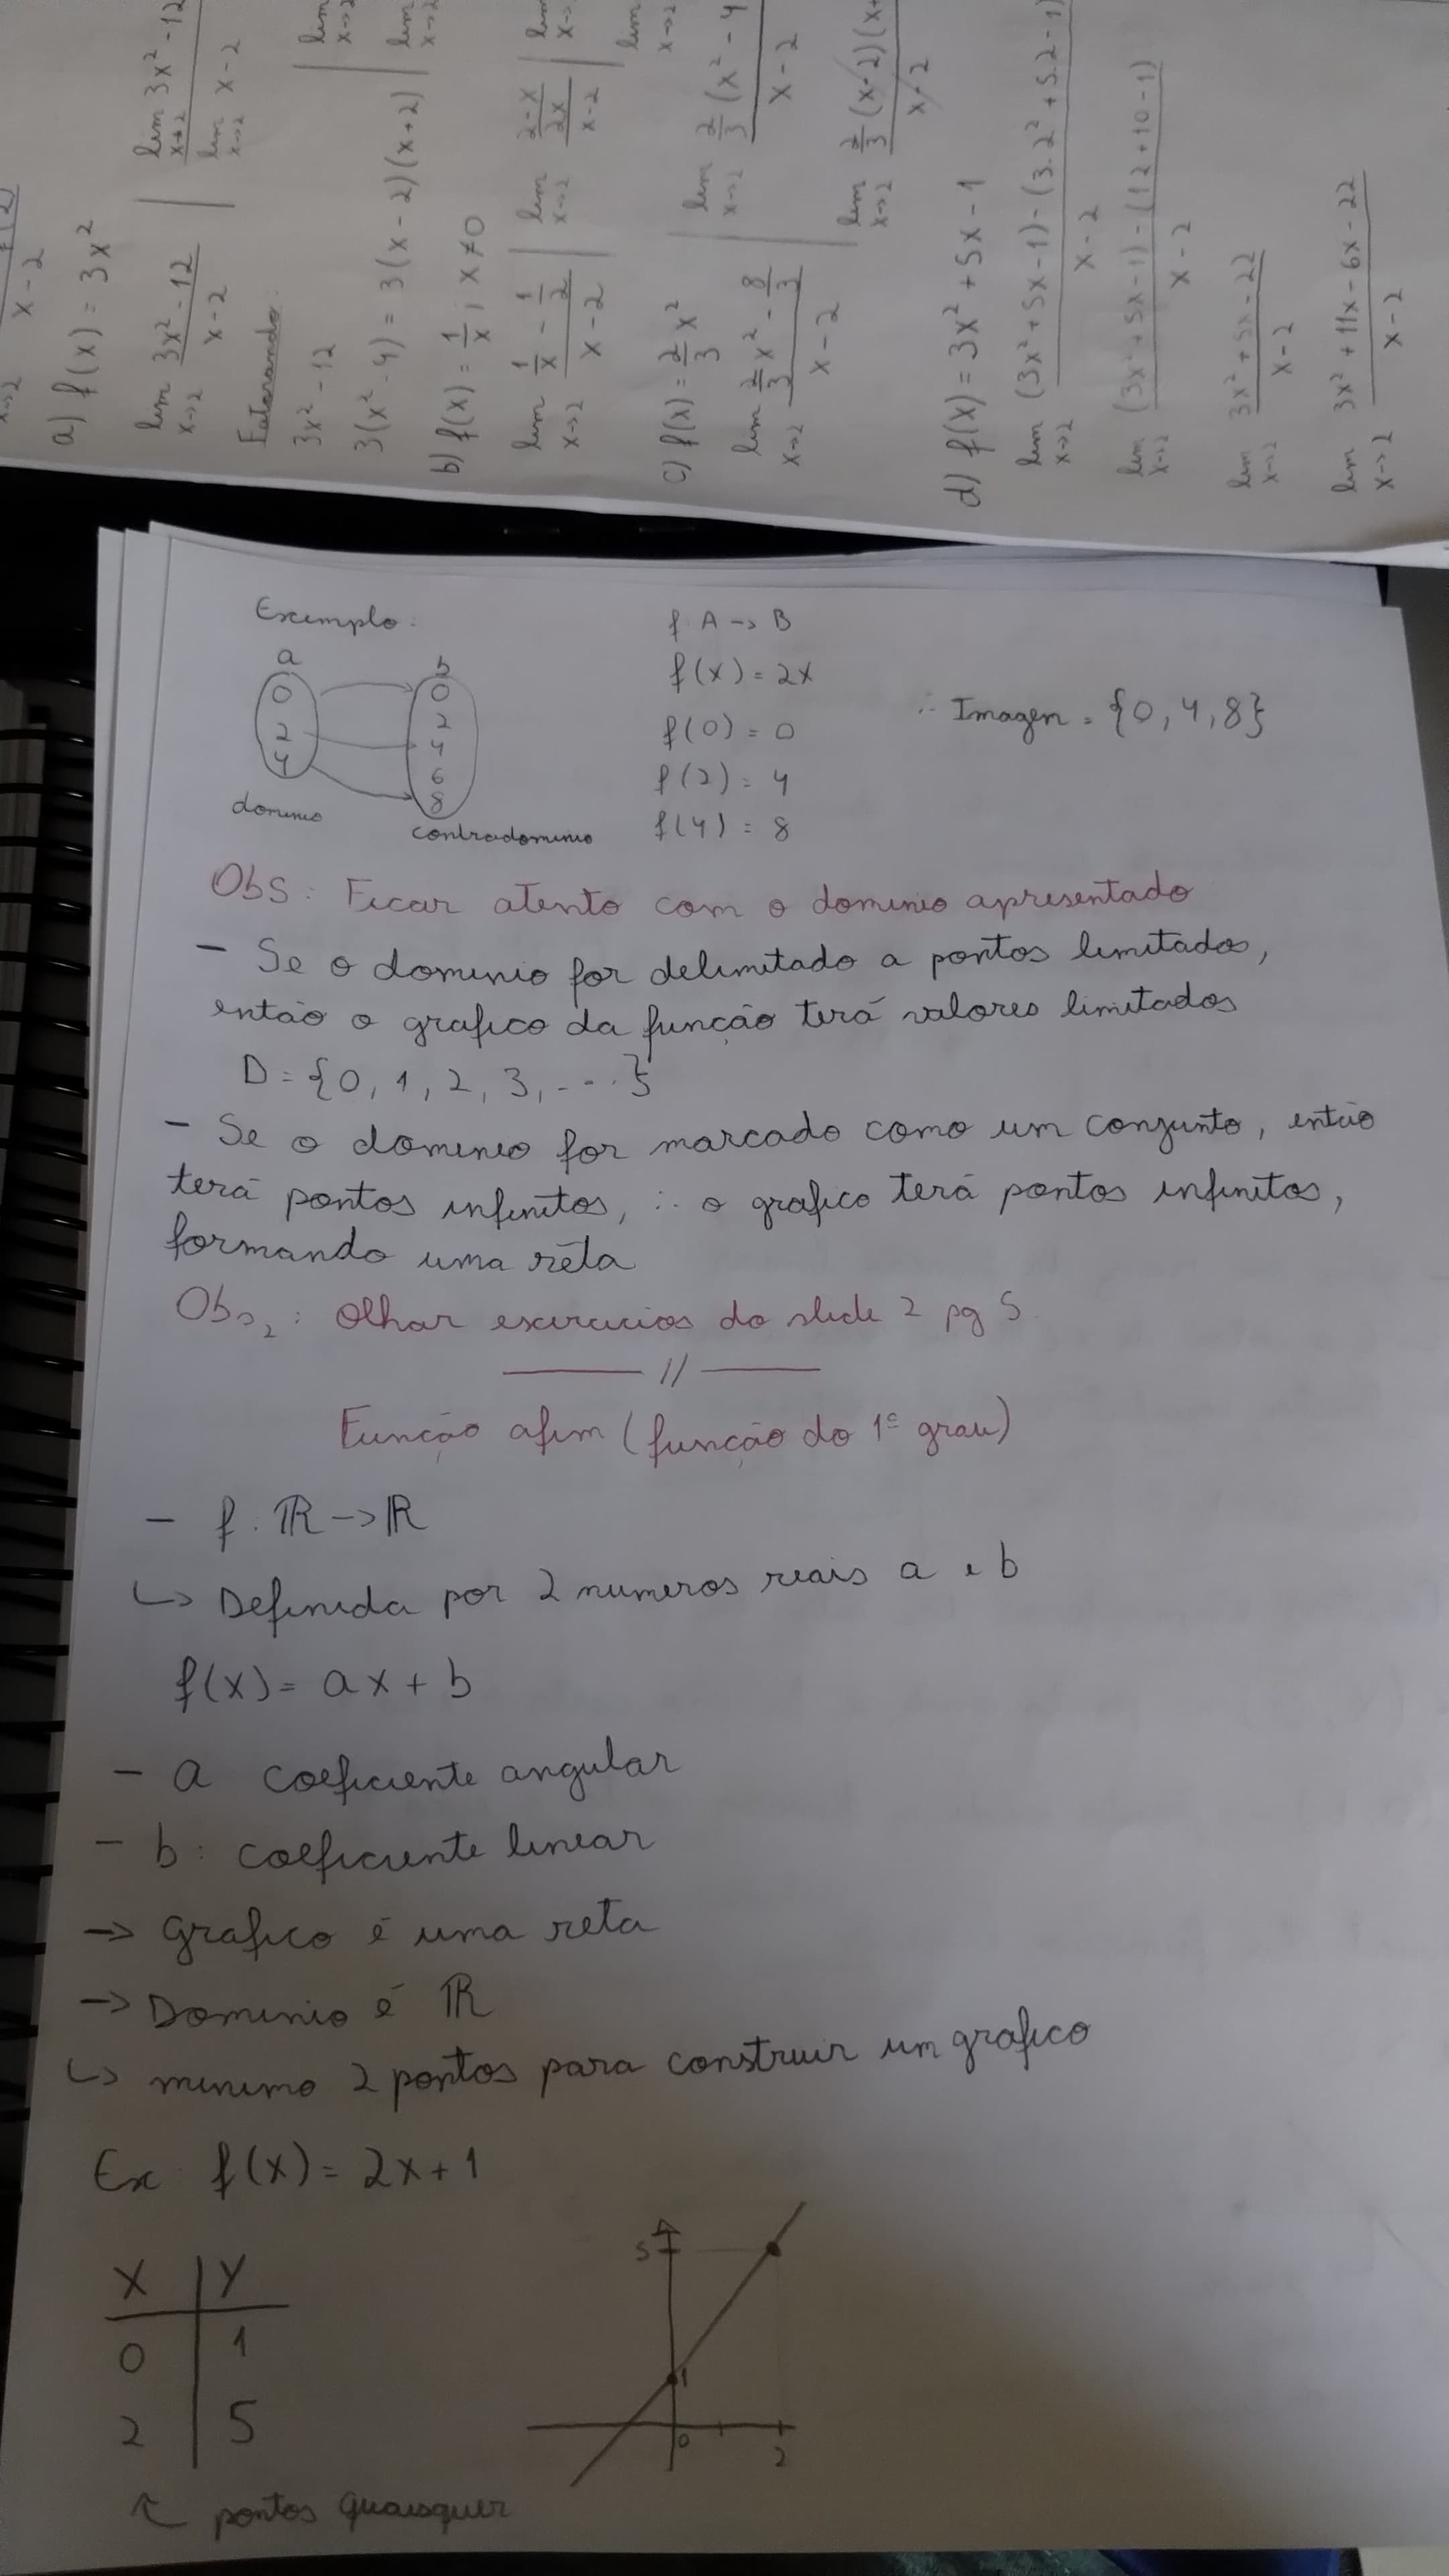 x→2 x-2
a) f(x) = 3x²
lim 3x² - 12 | lim 3x² - 12
x→2 x-2 | x→2
lim x-2
x→2
Fatorando:
3x² - 12 | lim
x→2
3(x² - 4) = 3(x - 2)(x + 2) | lim
x→2
b) f(x) = 1/x ; x ≠ 0
lim 1/x - 1/2 | lim 2-x/2x | lim
x→2 x-2 | x→2 x-2 | x→
lim
x→2
c) f(x) = 2/3 x² | lim 2/3 (x² - 4
x→2 x-2
lim 2/3 x² - 8/3 | lim 2/3 (x-2)(x+
x→2 x-2 | x→2 x-2
d) f(x) = 3x² + 5x - 1
lim (3x² + 5x - 1) - (3.2² + 5.2 - 1)
x→2 x-2
lim (3x² + 5x - 1) - (12 + 10 - 1)
x→2 x-2
lim 3x² + 5x - 22
x→2 x-2
lim 3x² + 11x - 6x - 22
x→2 x-2
Exemplo:
a b
0 0
2 2
4 4
6
8
dominio
contradominio
f A → B
f(x) = 2x
f(0) = 0
f(2) = 4
f(4) = 8
∴ Imagem = {0, 4, 8}
Obs: Ficar atento com o dominio apresentado
- Se o dominio for delimitado a pontos limitados,
então o grafico da função terá valores limitados
D = {0, 1, 2, 3, ...}
- Se o dominio for marcado como um conjunto, então
terá pontos infinitos, ∴ o grafico terá pontos infinitos,
formando uma réta
Obs₂: Olhar exercicios do slide 2 pg 5
//
Função afim (função do 1º grau)
- f: ℝ → ℝ
↳ Definida por 2 numeros reais a e b
f(x) = ax + b
- a coeficiente angular
- b: coeficiente linear
→ Grafico é uma reta
→ Dominio é ℝ
↳ minimo 2 pontos para construir um grafico
Ex: f(x) = 2x + 1
X | Y
0 | 1
2 | 5
↖ pontos quaisquer
5
1
0 2